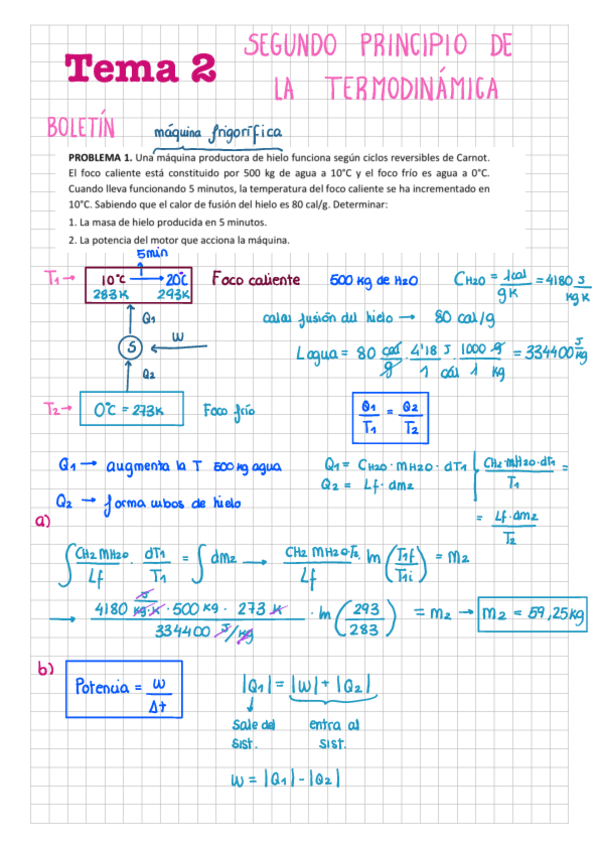 Tema 2
SEGUNDO PRINCIPIO DE
LA TERMODINÁMICA
BOLETÍN
máquina frigorífica
PROBLEMA 1. Una máquina productora de hielo funciona según ciclos reversibles de Carnot.
El foco caliente está constituido por 500 kg de agua a 10°C y el foco frío es agua a 0°C.
Cuando lleva funcionando 5 minutos, la temperatura del foco caliente se ha incrementado en
10°C. Sabiendo que el calor de fusión del hielo es 80 cal/g. Determinar:
1. La masa de hielo producida en 5 minutos.
2. La potencia del motor que acciona la máquina.
5min
T1 → 10°C → 20°C Foco caliente 500 kg de H2O CH2O = 1cal/gK = 4180 J/kgK
283K 293K
Q1
calor fusión del hielo → 80 cal/g
S ← W
Lagua = 80 cal/g · 4'18 J/1 cal · 1000 g/1 kg = 334400 J/kg
Q2
T2 → 0°C = 273K Foco frío
Q1/T1 = Q2/T2
Q1 → augmenta la T 500 kg agua
Q1 = CH2O · MH2O · dT1
CH2·MH2O·dT1/T1 =
Q2 → forma cubos de hielo
Q2 = Lf · dm2
= Lf·dm2/T2
a)
∫ CH2 MH2O/Lf · dT1/T1 = ∫ dm2 → CH2 MH2O T2/Lf ln (T1f/T1i) = m2
→ 4180 J/kg·K · 500 kg · 273 K / 334400 J/kg · ln (293/283) = m2 → m2 = 59,25kg
b)
Potencia = W/Δt
|Q1| = |W| + |Q2|
↓
Sale del entra al
Sist. sist.
W = |Q1| - |Q2|